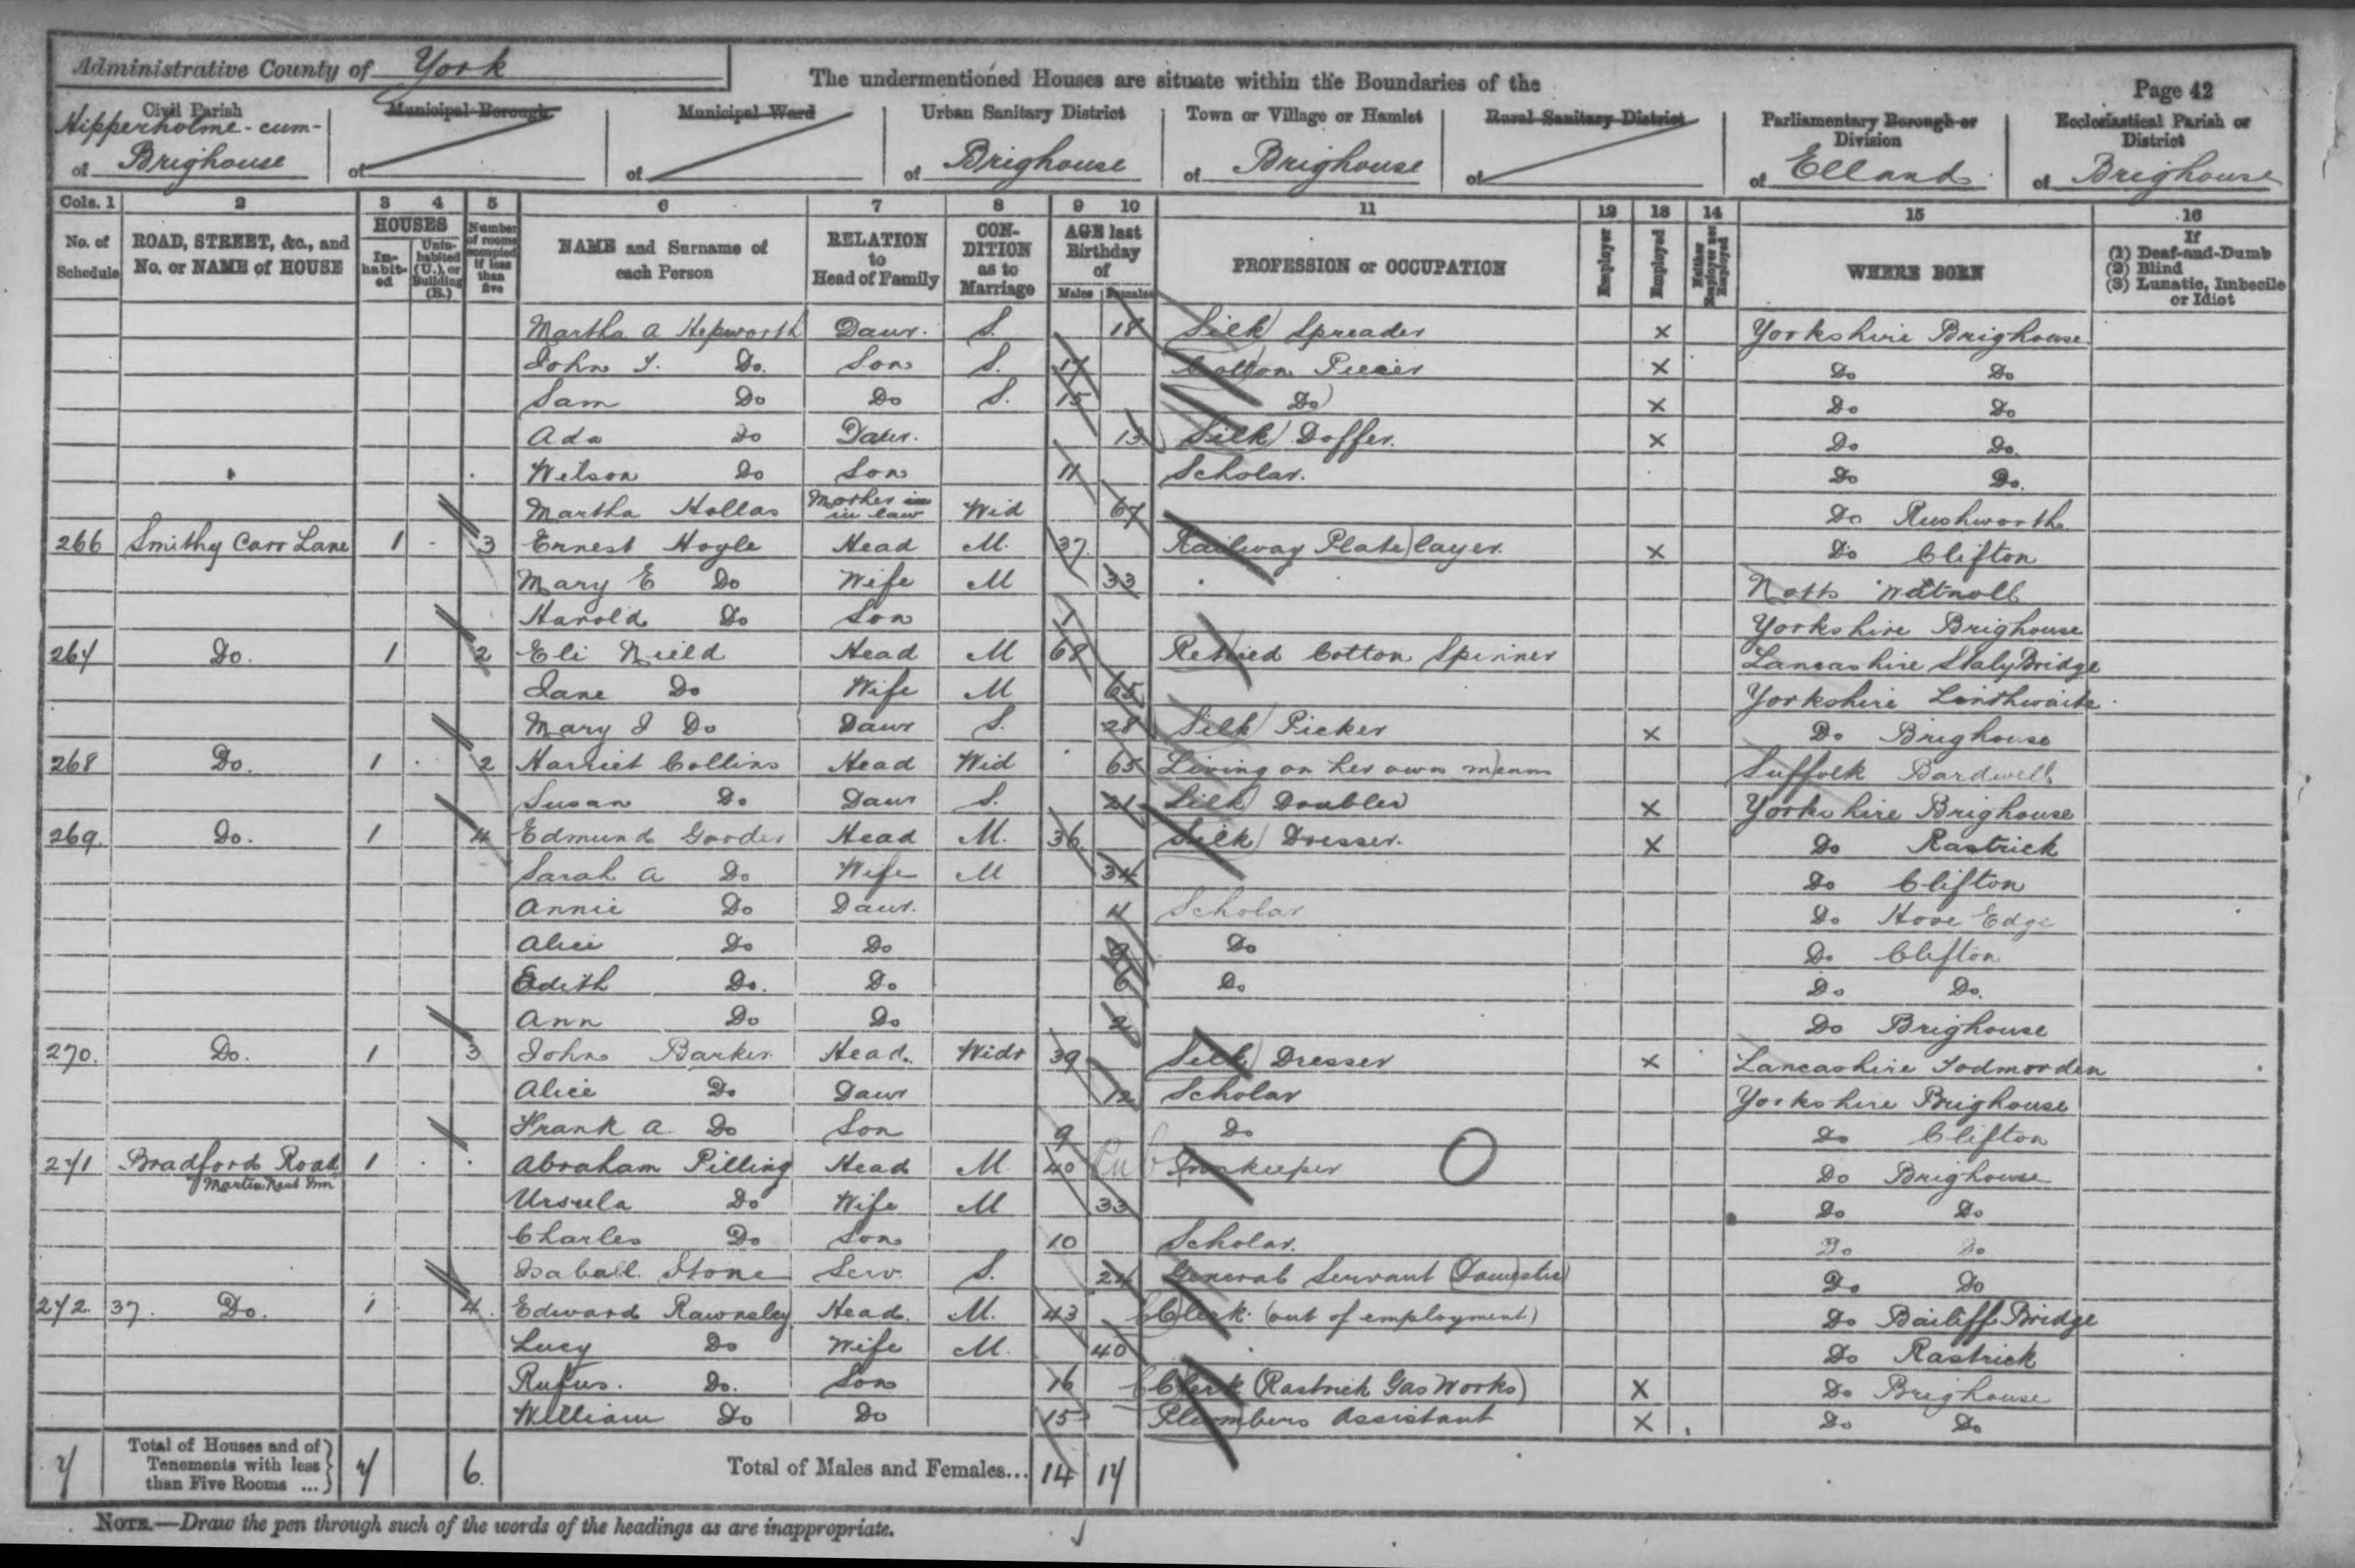 Administrative County of York
The undermentioned Houses are situate within the Boundaries of the
Page 42
Civil Parish of Hipperholme-cum-Brighouse
Municipal Borough of
Municipal Ward of
Urban Sanitary District of Brighouse
Town or Village or Hamlet of Brighouse
Rural Sanitary District of
Parliamentary Borough or Division of Elland
Ecclesiastical Parish or District of Brighouse
Cols. 1 2 3 4 5 6 7 8 9 10 11 12 13 14 15 16
No. of Schedule
ROAD, STREET, &c., and No. or NAME of HOUSE
HOUSES
In-habit-ed
Unin-habited (U.), or Building (B.)
Number of rooms occupied if less than five
NAME and Surname of each Person
RELATION to Head of Family
CON-DITION as to Marriage
AGE last Birthday of
Males Females
PROFESSION or OCCUPATION
Employer
Employed
Neither Employer nor Employed
WHERE BORN
If (1) Deaf-and-Dumb (2) Blind (3) Lunatic, Imbecile or Idiot
Martha A Hepworth Daur. S. 18 Silk Spreader × Yorkshire Brighouse
John T. Do. Son S. 17 Cotton Piecer × Do Do
Sam Do Do S. 15 Do × Do Do
Ada Do Daur. 13 Silk Doffer. × Do Do.
Wilson Do Son 11 Scholar. Do Do.
Martha Hollas Mother in in law Wid 67 Do Rushworth
266 Smithy Carr Lane 1 3 Ernest Hoyle Head M. 37 Railway Plate layer. × Do Clifton
Mary E Do Wife M 33 Notts Watnall
Harold Do Son 7 Yorkshire Brighouse
267 Do. 1 2 Eli Nield Head M 68 Retired Cotton Spinner Lancashire Staly Bridge
Jane Do Wife M 65 Yorkshire Linthwaite
Mary J Do Daur S. 28 Silk Picker × Do Brighouse
268 Do. 1 2 Harriet Collins Head Wid 65 Living on her own means Suffolk Bardwell
Susan Do Daur S. 21 Silk Doubler × Yorkshire Brighouse
269. Do. 1 4 Edmund Gooder Head M. 36 Silk Dresser. × Do Rastrick
Sarah A Do Wife M 34 Do Clifton
Annie Do Daur. 11 Scholar Do Hove Edge
Alice Do Do 9 Do Do Clifton
Edith Do. Do 6 Do Do Do.
Ann Do Do 2 Do Brighouse
270. Do. 1 3 John Barker Head. Widr 39 Silk Dresser × Lancashire Todmorden
Alice Do Daur 12 Scholar Yorkshire Brighouse
Frank A Do Son 9 Do Do Clifton
271 Bradford Road 1 Abraham Pilling Head M 40 Pub Innkeeper O Do Brighouse
Martins Nest Inn
Ursula Do Wife M 33 Do Do
Charles Do Son 10 Scholar. Do Do
Isaball Stone Serv. S. 24 General Servant (Domestic) Do Do
272. 37. Do. 1 4. Edward Rawnsley Head. M. 43 Clerk (out of employment) Do Bailiff Bridge
Lucy Do Wife M. 40 Do Rastrick
Rufus. Do. Son 16 Clerk (Rastrick Gas Works) × Do Brighouse
William Do Do 15 Plumbers Assistant × Do Do
7 Total of Houses and of Tenements with less than Five Rooms ... 7 6. Total of Males and Females... 14 17
NOTE.—Draw the pen through such of the words of the headings as are inappropriate.